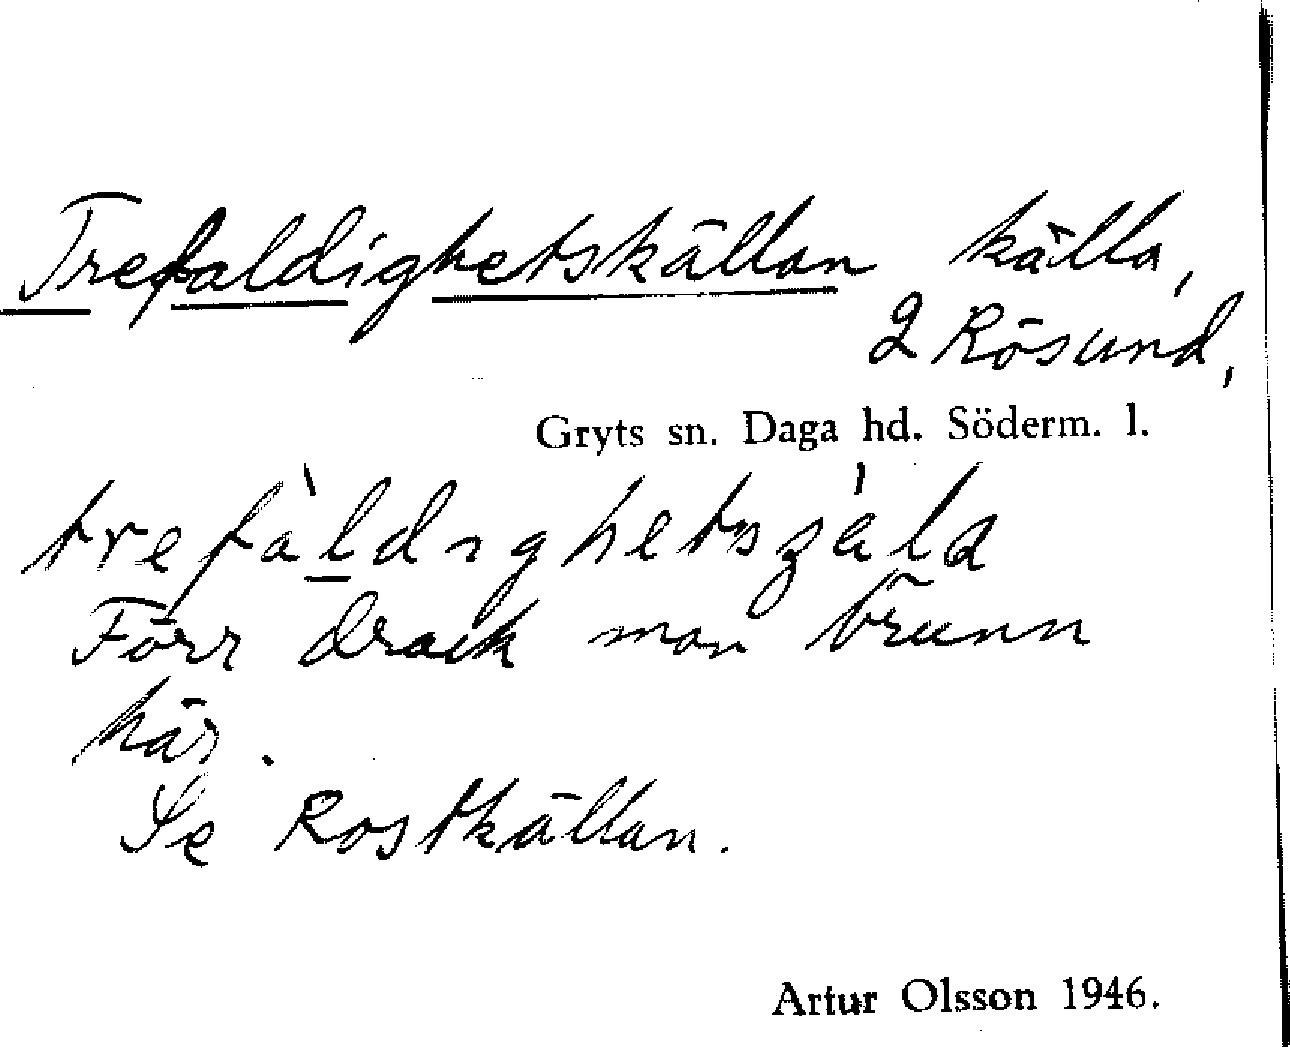 Trefaldighetskällan källa,
2 Rösund,
Gryts sn. Daga hd. Söderm. l.
trefàldıghetsʒálα
Förr drack man brunn
här.
Se Rostkällan.
Artur Olsson 1946.